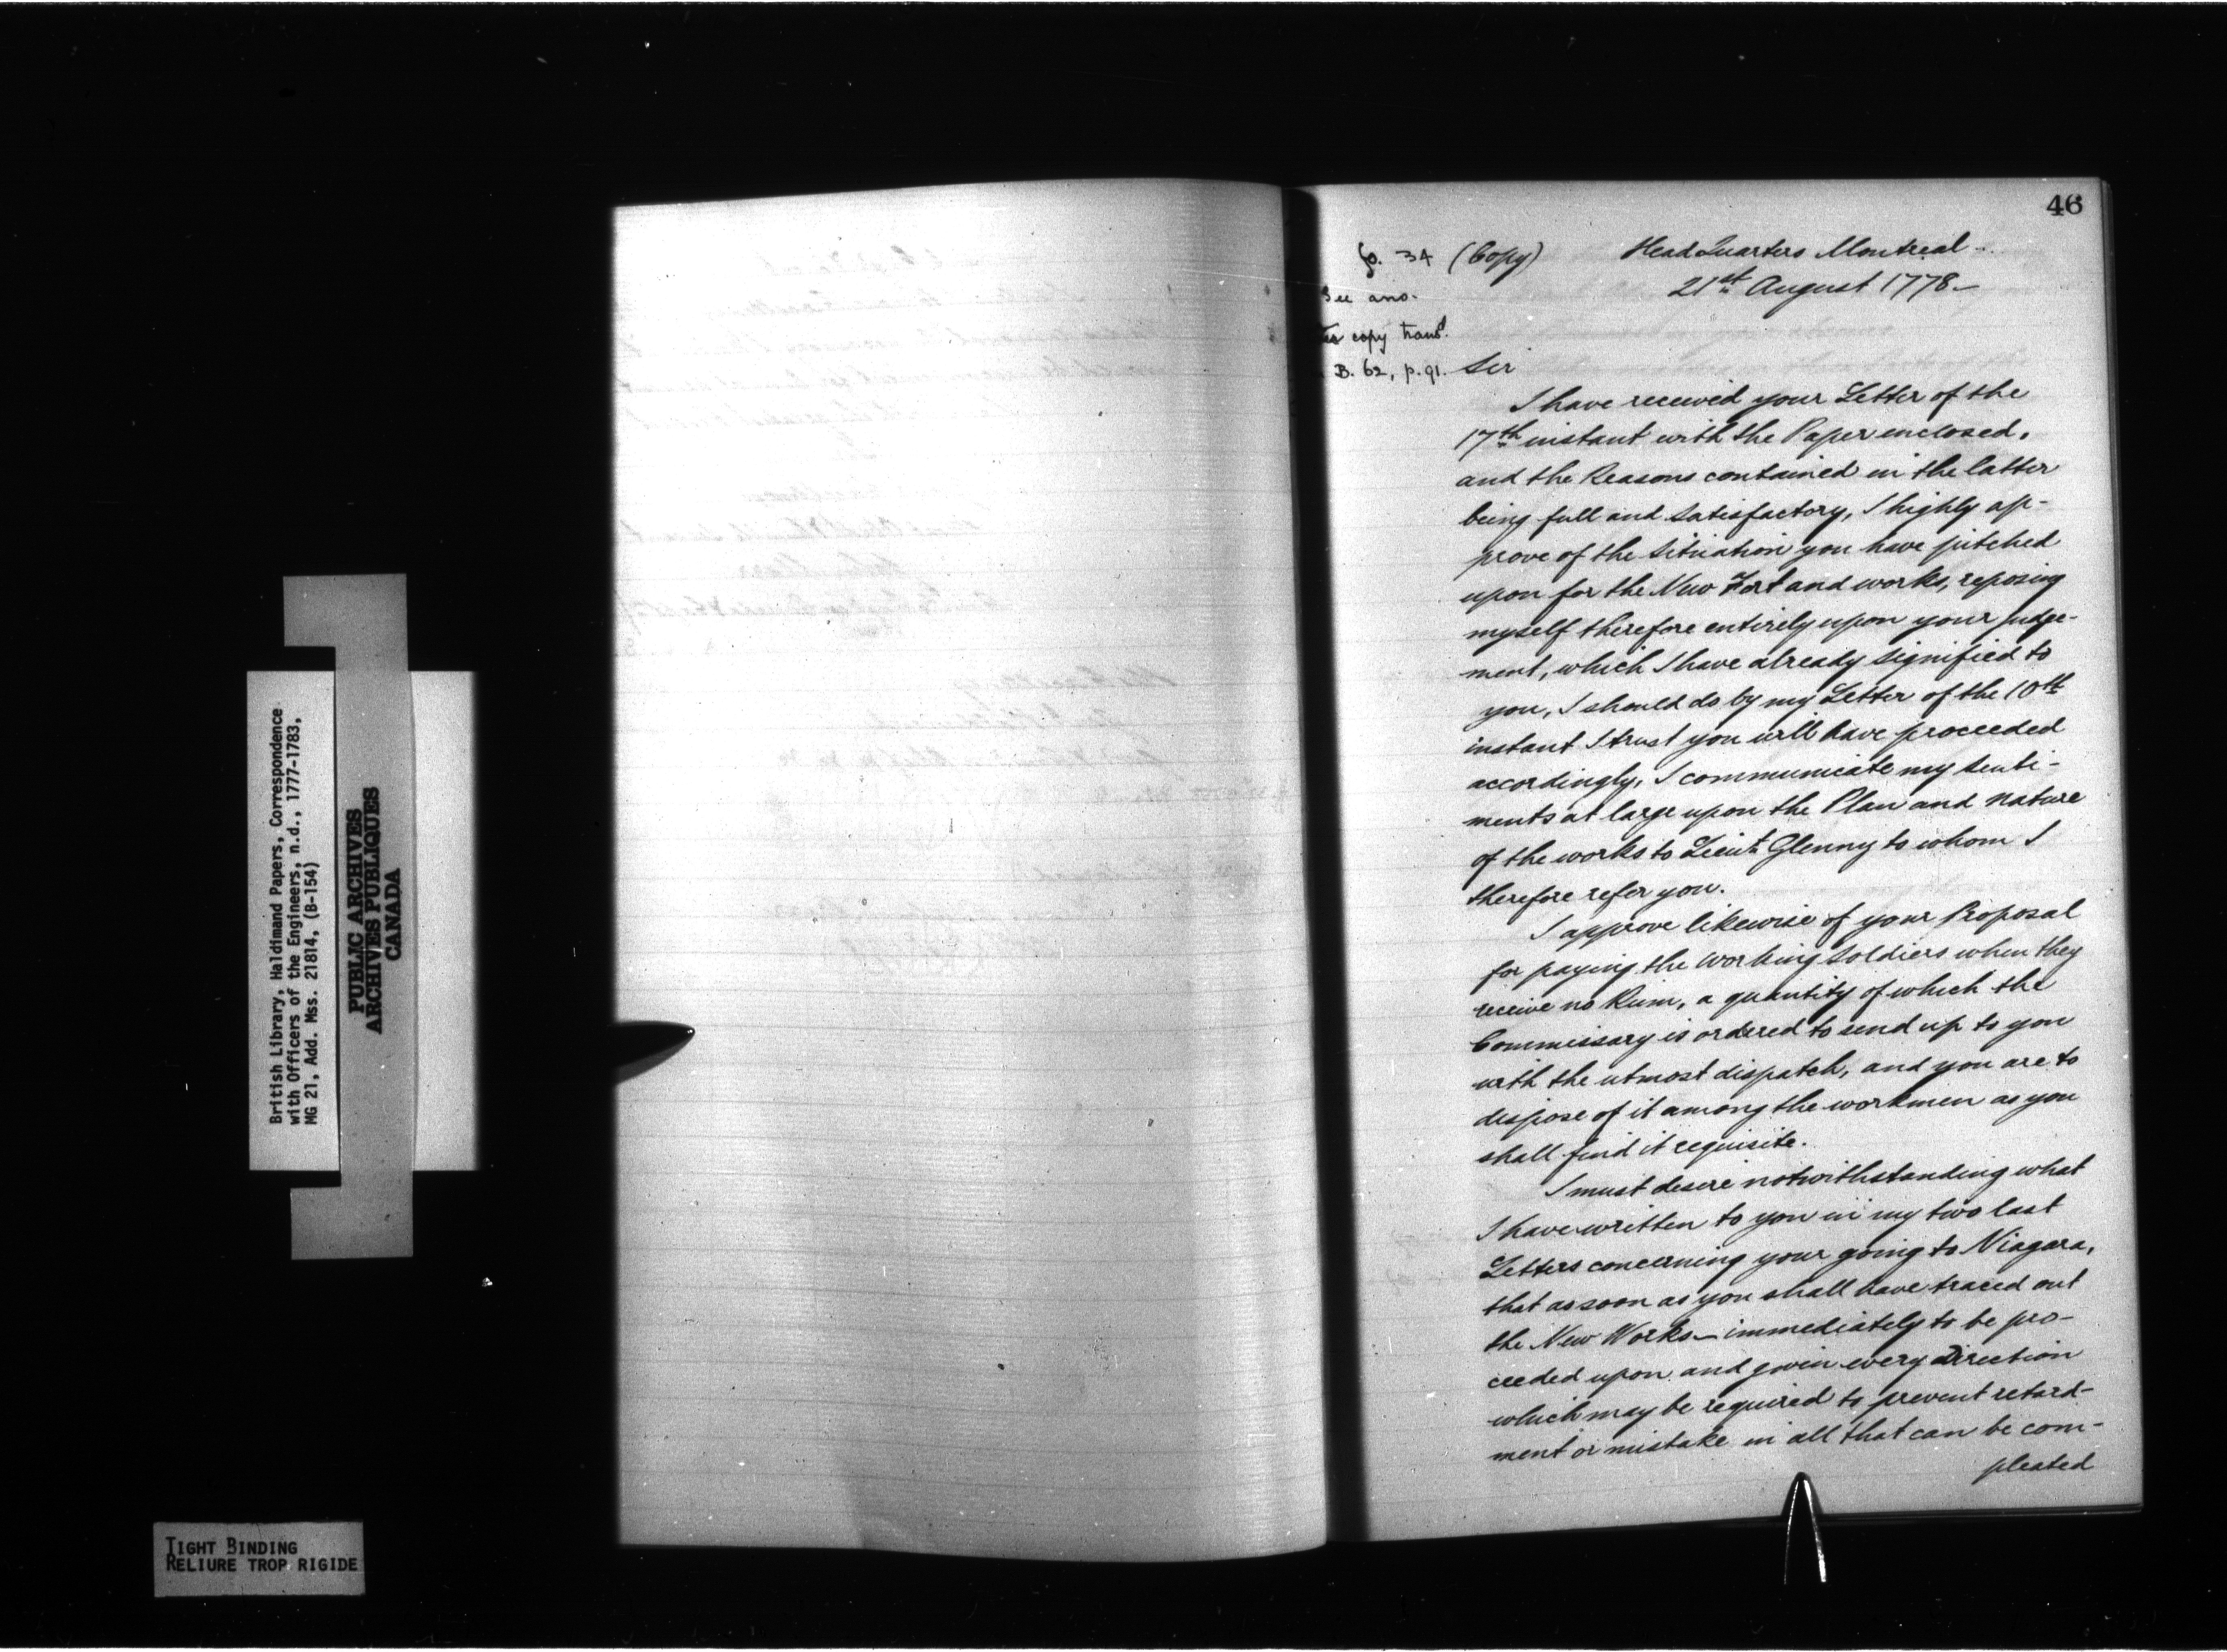 46
fo. 34 (Copy) Head Quarters Montreal -
21st August 1778 -
See ano.
copy transd.
B. 62, p. 91. Sir
I have received your Letter of the
17th instant with the Paper enclosed,
and the Reasons contained in the latter
being full and satisfactory, I highly ap-
prove of the Situation you have pitched
upon for the New Fort and works, reposing
myself therefore entirely upon your judge-
ment, which I have already signified to
you, I should do by my Letter of the 10th
instant I trust you will have proceeded
accordingly, I communicate my Senti-
ments at large upon the Plan and nature
of the works to Lieut. Glenny to whom I
therefore refer you.
I approve likewise of your Proposal
for paying the working Soldiers when they
receive no Rum, a quantity of which the
Commissary is ordered to send up to you
with the utmost dispatch, and you are to
dispose of it among the workmen as you
shall find it requisite.
I must desire notwithstanding what
I have written to you in my two last
Letters concerning your going to Niagara,
that as soon as you shall have traced out
the New Works - immediately to be pro-
ceeded upon and given every Direction
which may be required to prevent retard-
ment or mistake in all that can be com-
pleated
British Library, Haldimand Papers, Correspondence
with Officers of the Engineers, n.d., 1777-1783,
MG 21, Add. Mss. 21814, (B-154)
PUBLIC ARCHIVES
ARCHIVES PUBLIQUES
CANADA
TIGHT BINDING
RELIURE TROP RIGIDE